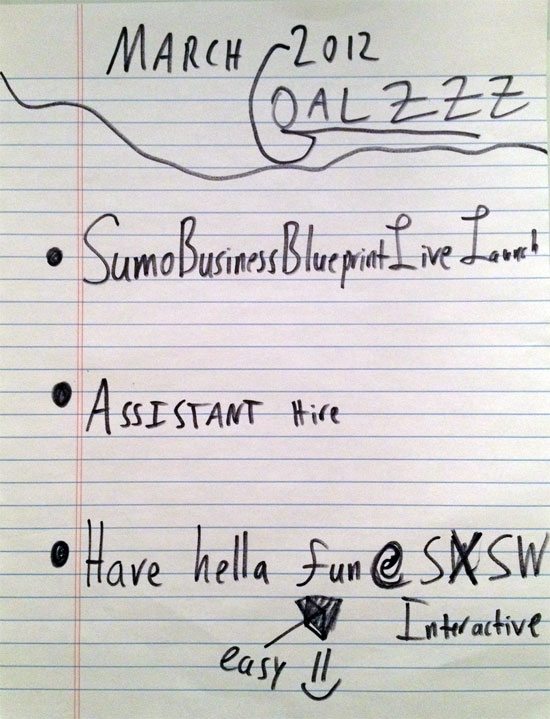 MARCH 2012
GOALZZZ
• SumoBusinessBlueprint Live Launch
• ASSISTANT Hire
• Have hella fun @ SXSW
Interactive
easy